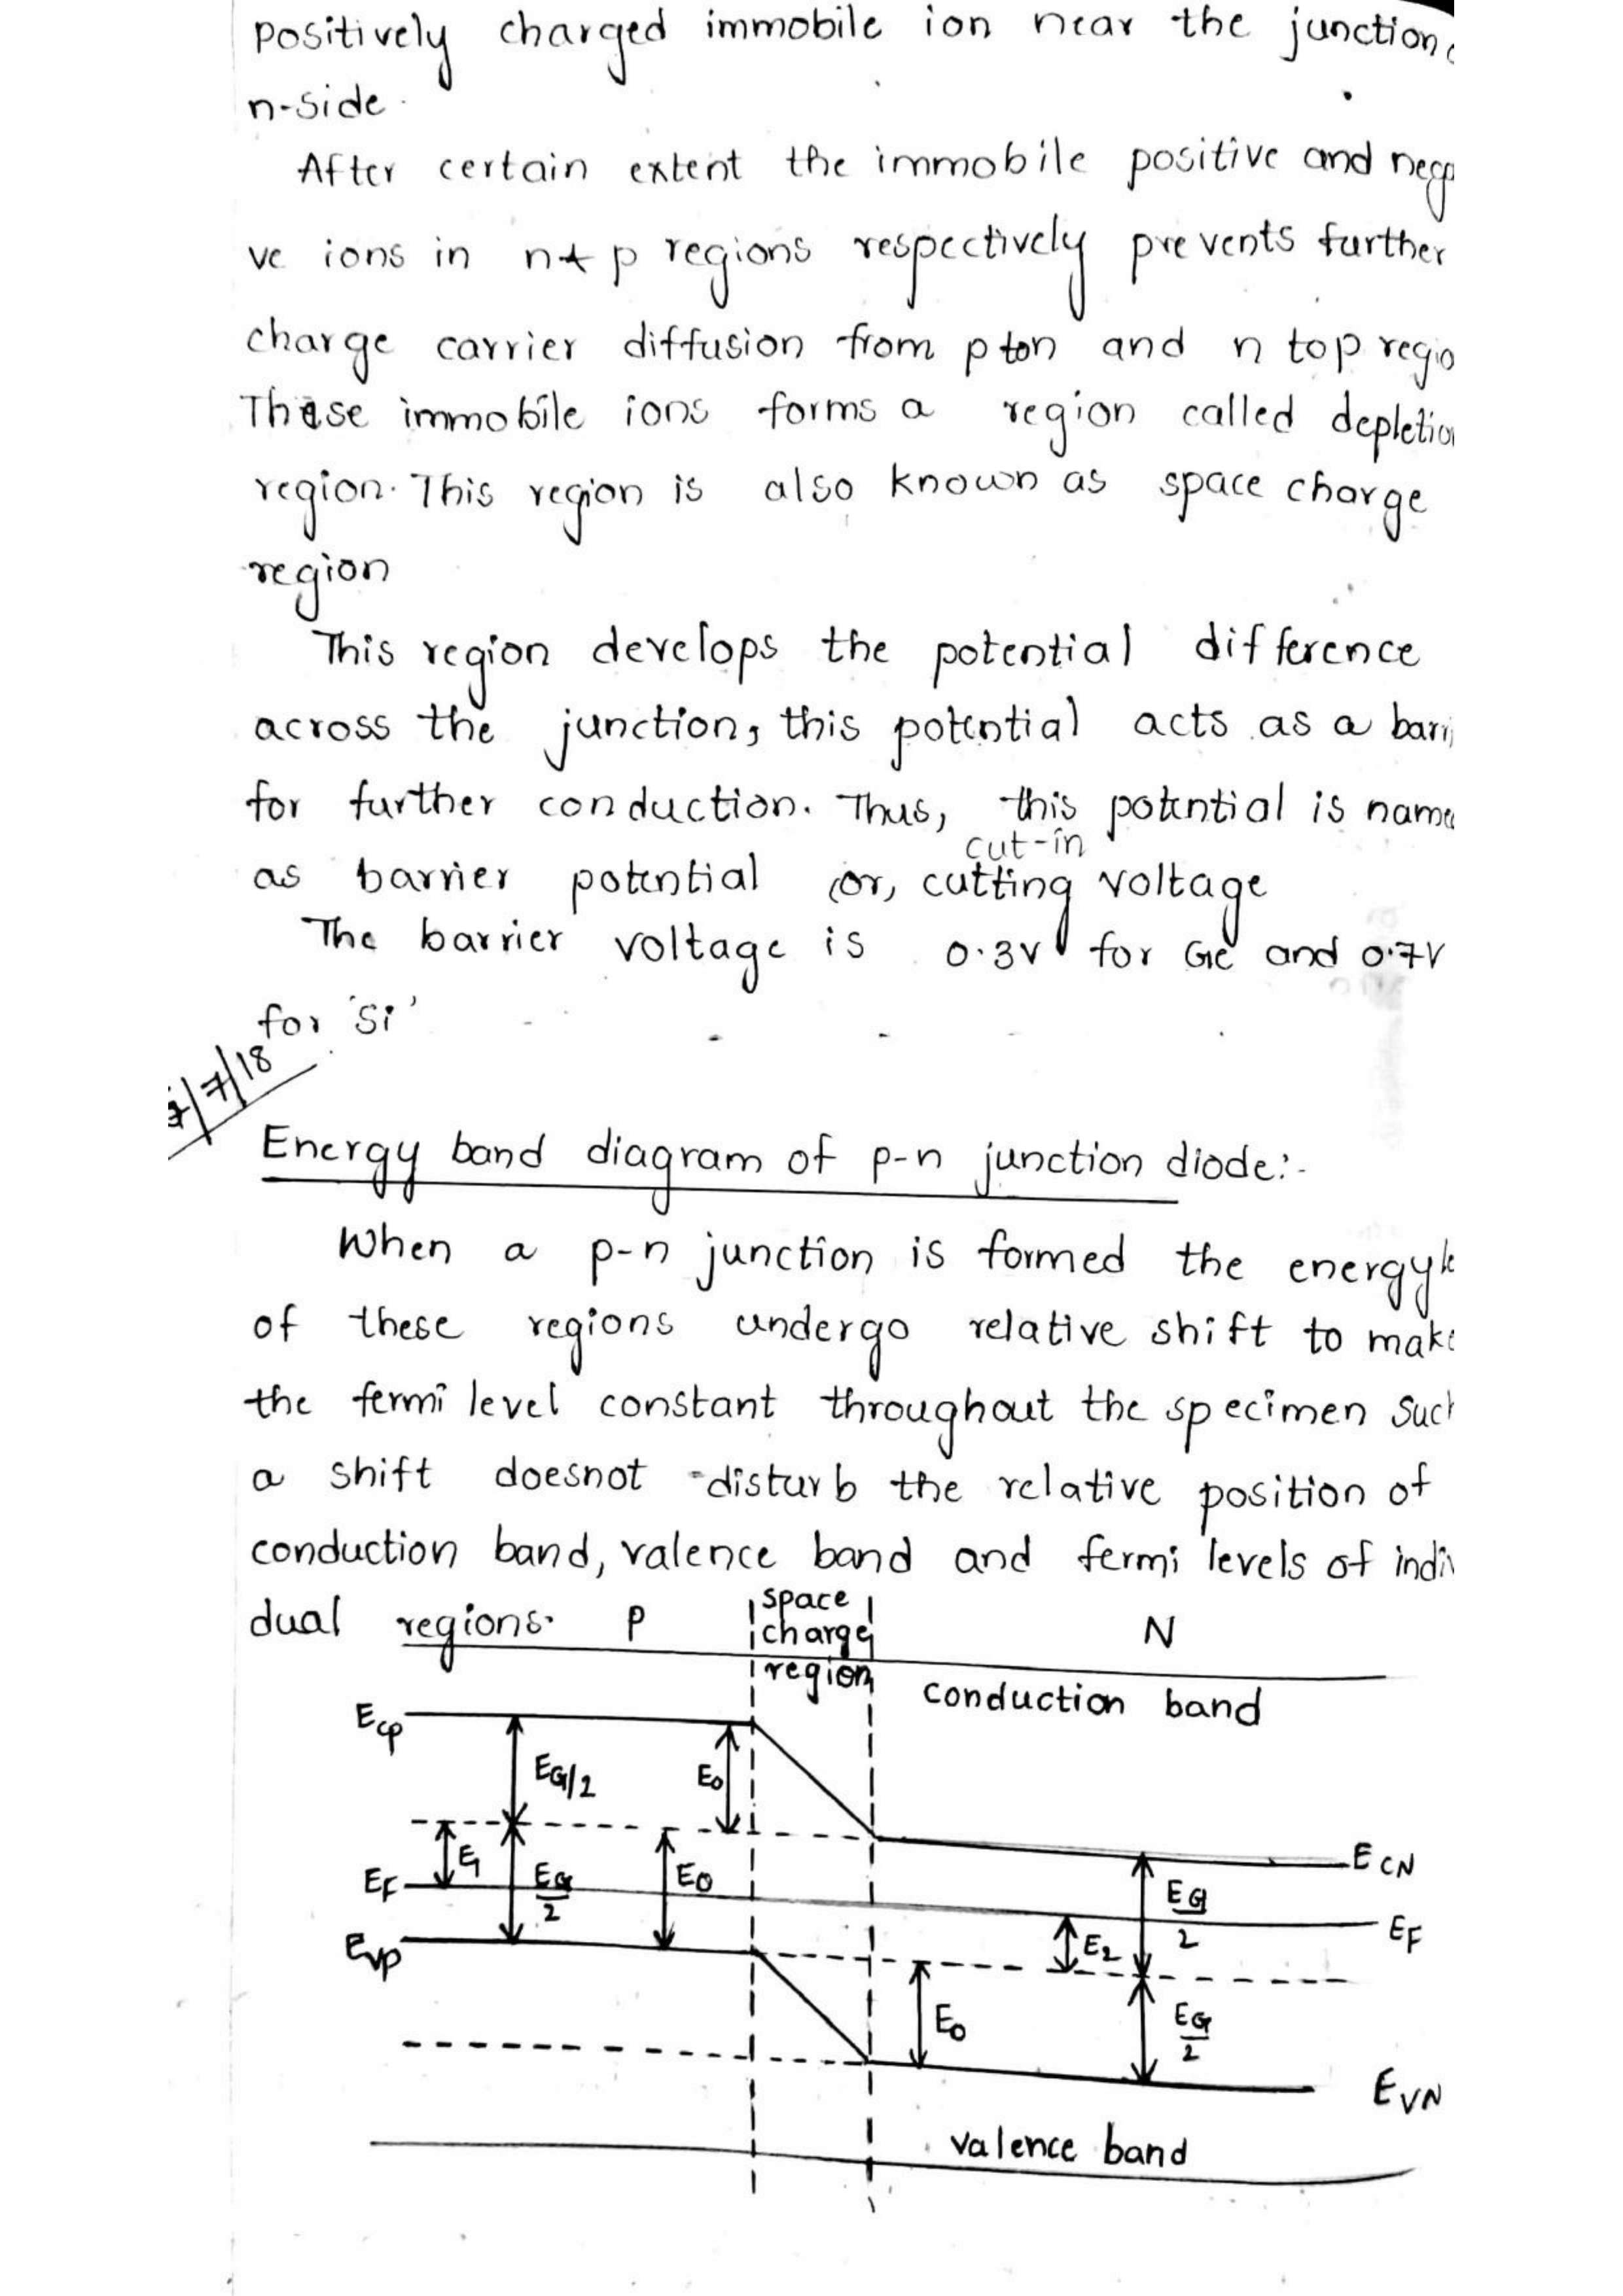 positively charged immobile ion near the junction
n-side.
After certain extent the immobile positive and nega
ve ions in n & p regions respectively prevents further
charge carrier diffusion from p ton and n to p regio
These immobile ions forms a region called depletion
region. This region is also known as space charge
region
This region develops the potential difference
across the junction, this potential acts as a barri
for further conduction. Thus, this potential is name
cut-in
as barrier potential (or) cutting voltage
The barrier voltage is 0.3V for Ge and 0.7V
for 'Si'
/7/18
Energy band diagram of p-n junction diode:-
When a p-n junction is formed the energy
of these regions undergo relative shift to make
the fermi level constant throughout the specimen such
a shift doesnot disturb the relative position of
conduction band, valence band and fermi levels of indiv
dual regions.
P
space
charge
region
N
conduction band
Ecp
EG/2
E0
E1
EF
EG/2
E0
ECN
EG/2
EF
Evp
E2
E0
EG/2
EVN
valence band